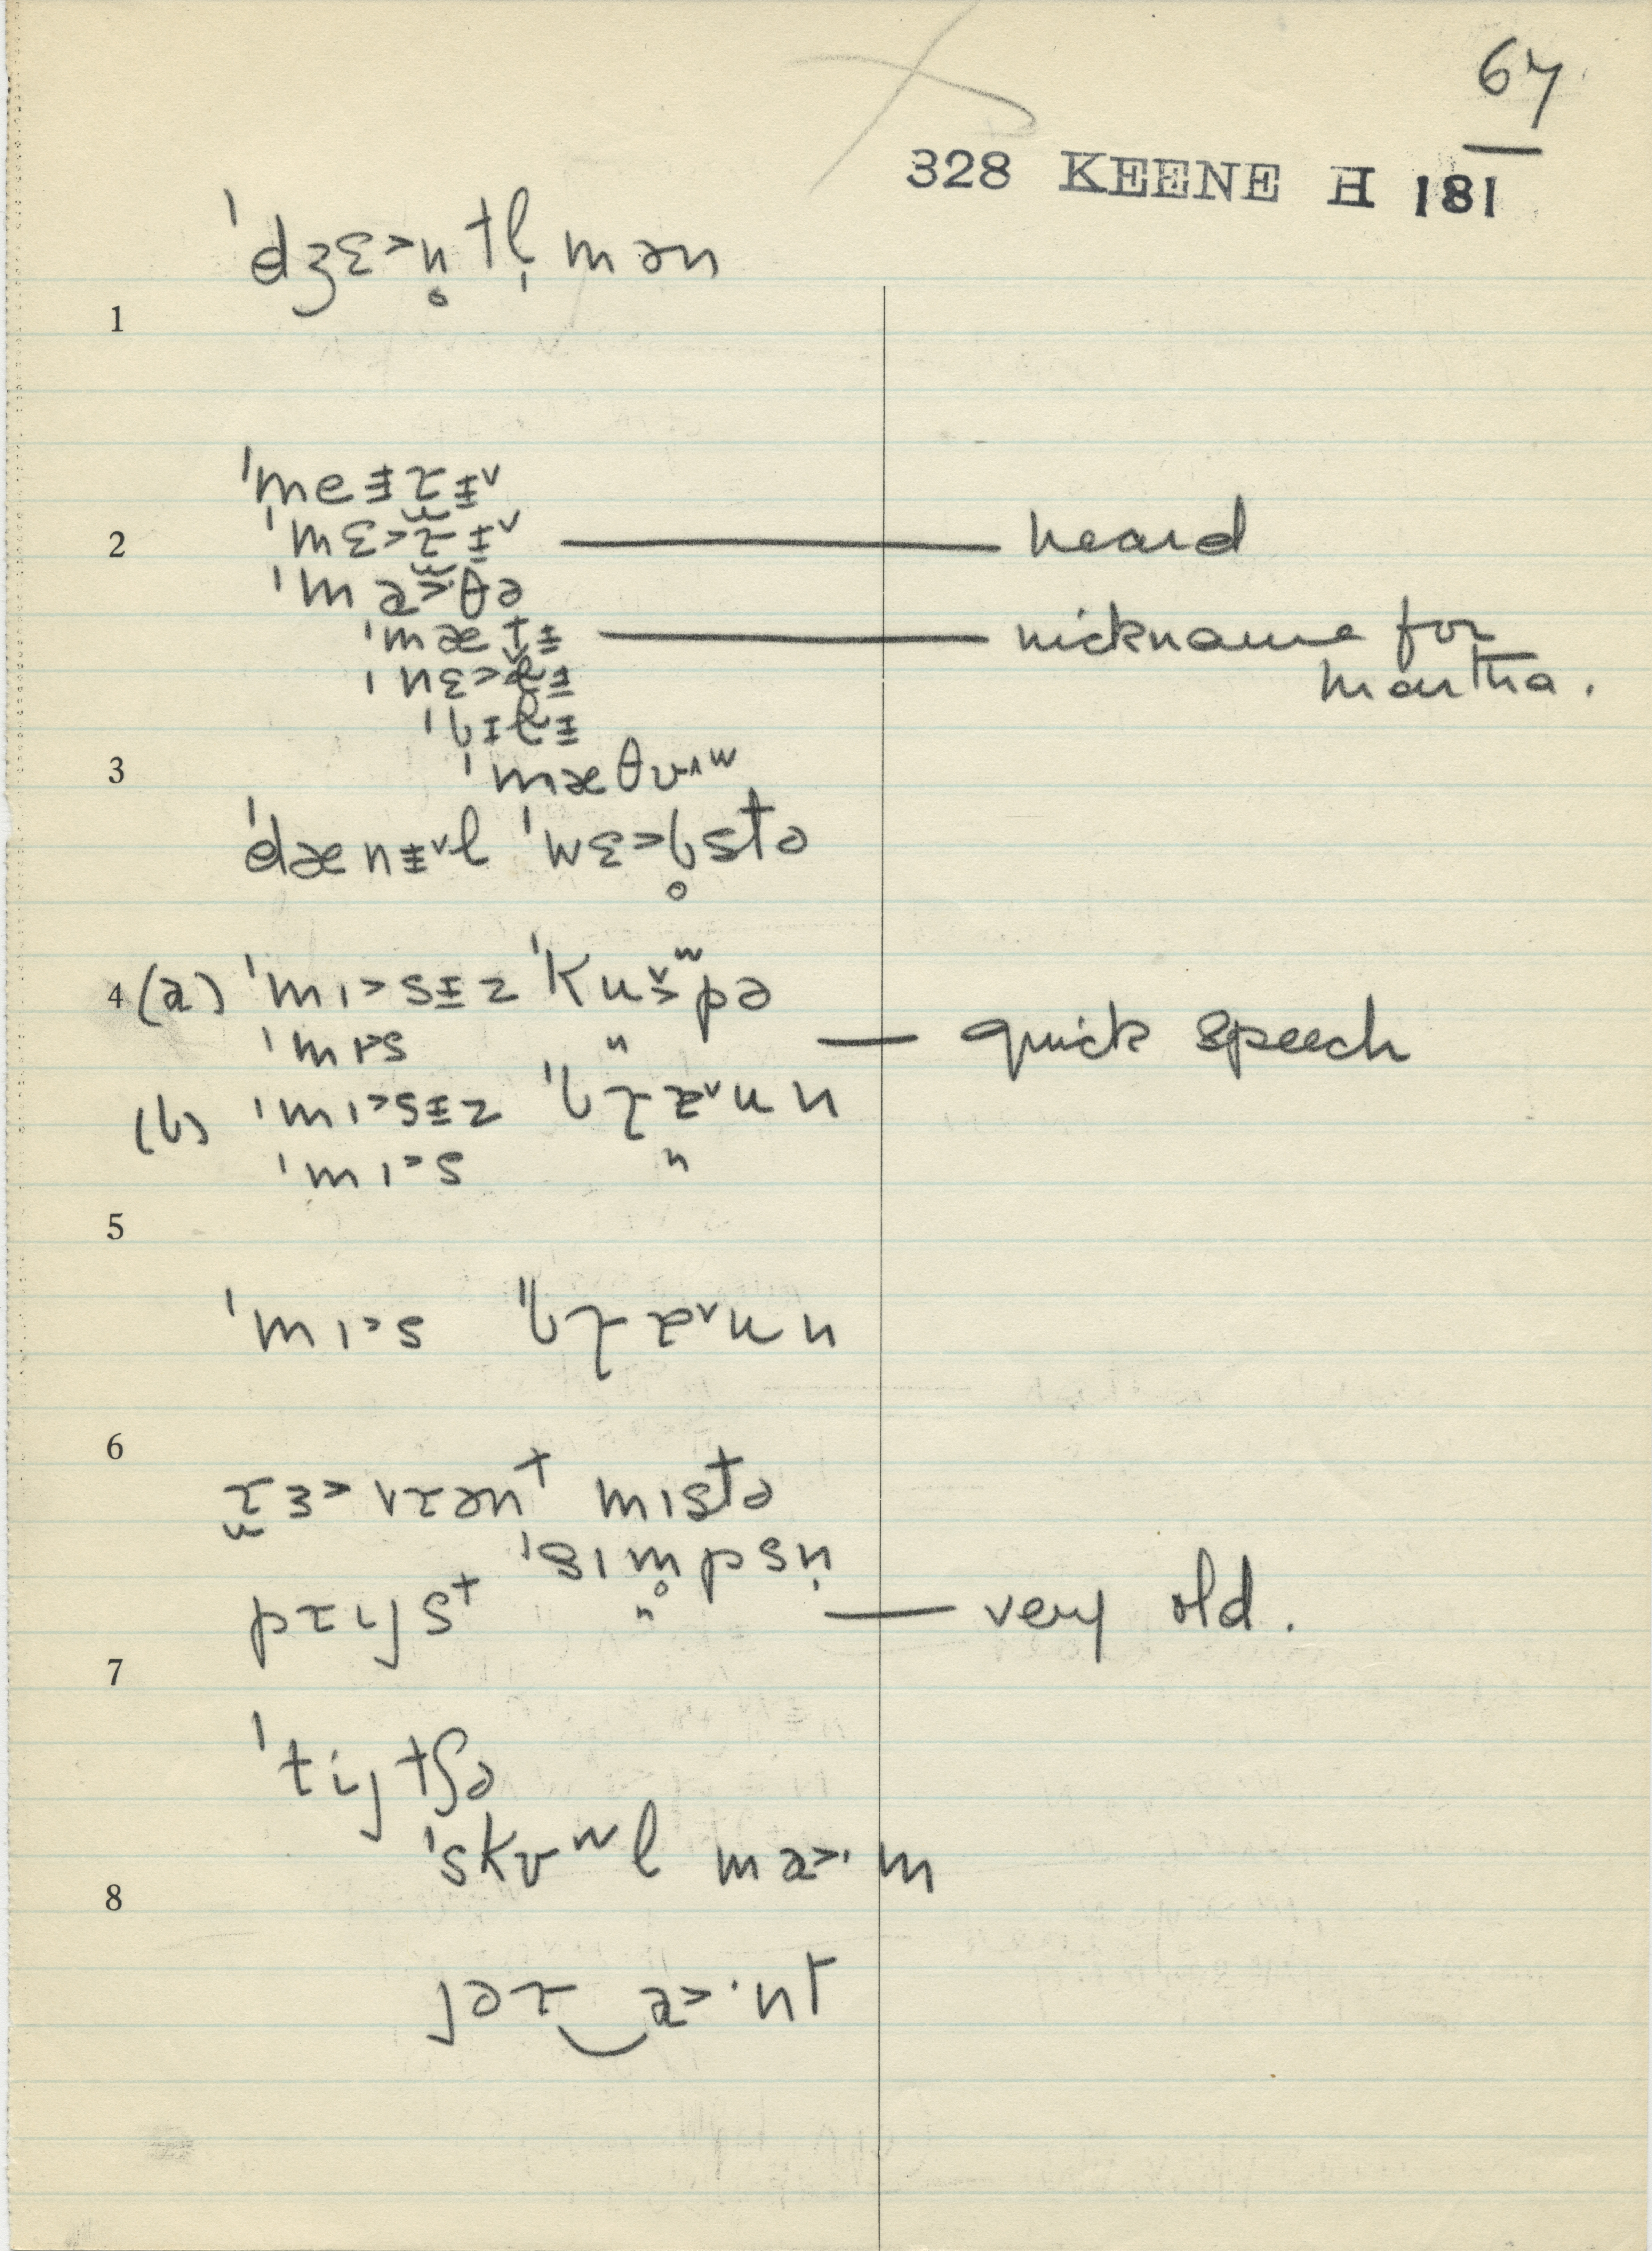 67
328 KEENE H 181
ˈdʒɛ˃n̥tl̩mən
1
ˈmeɪ̵ɹɪ̵ˇ
2 ˈmɛ˃ɹɪ̵ˇ — heard
ˈma˃θə
ˈmætɪ̵ — nickname for
Martha.
ˈnɛ˃lɪ̵
ˈbɪ̵lɪ̵
3 ˈmæθʊ^w
ˈdænɪ̵ˇl ˈwɛ˃b̥stə
4 (a) ˈmɪ˃sɪ̵z ˈkuʷpə
ˈmɪ˃s " — quick speech
(b) ˈmɪ˃sɪ̵z ˈbɹaˇun
ˈmɪ˃s "
5
ˈmɪ˃s ˈbɹaˇun
6
ɹɛ˃vɹənt mɪstə
ˈsɪm̥psn̩
pɹijst " — very old.
7
ˈtijtʃə
ˈskʊʷl ma˃·m
8
jəɹ‿a˃·nt